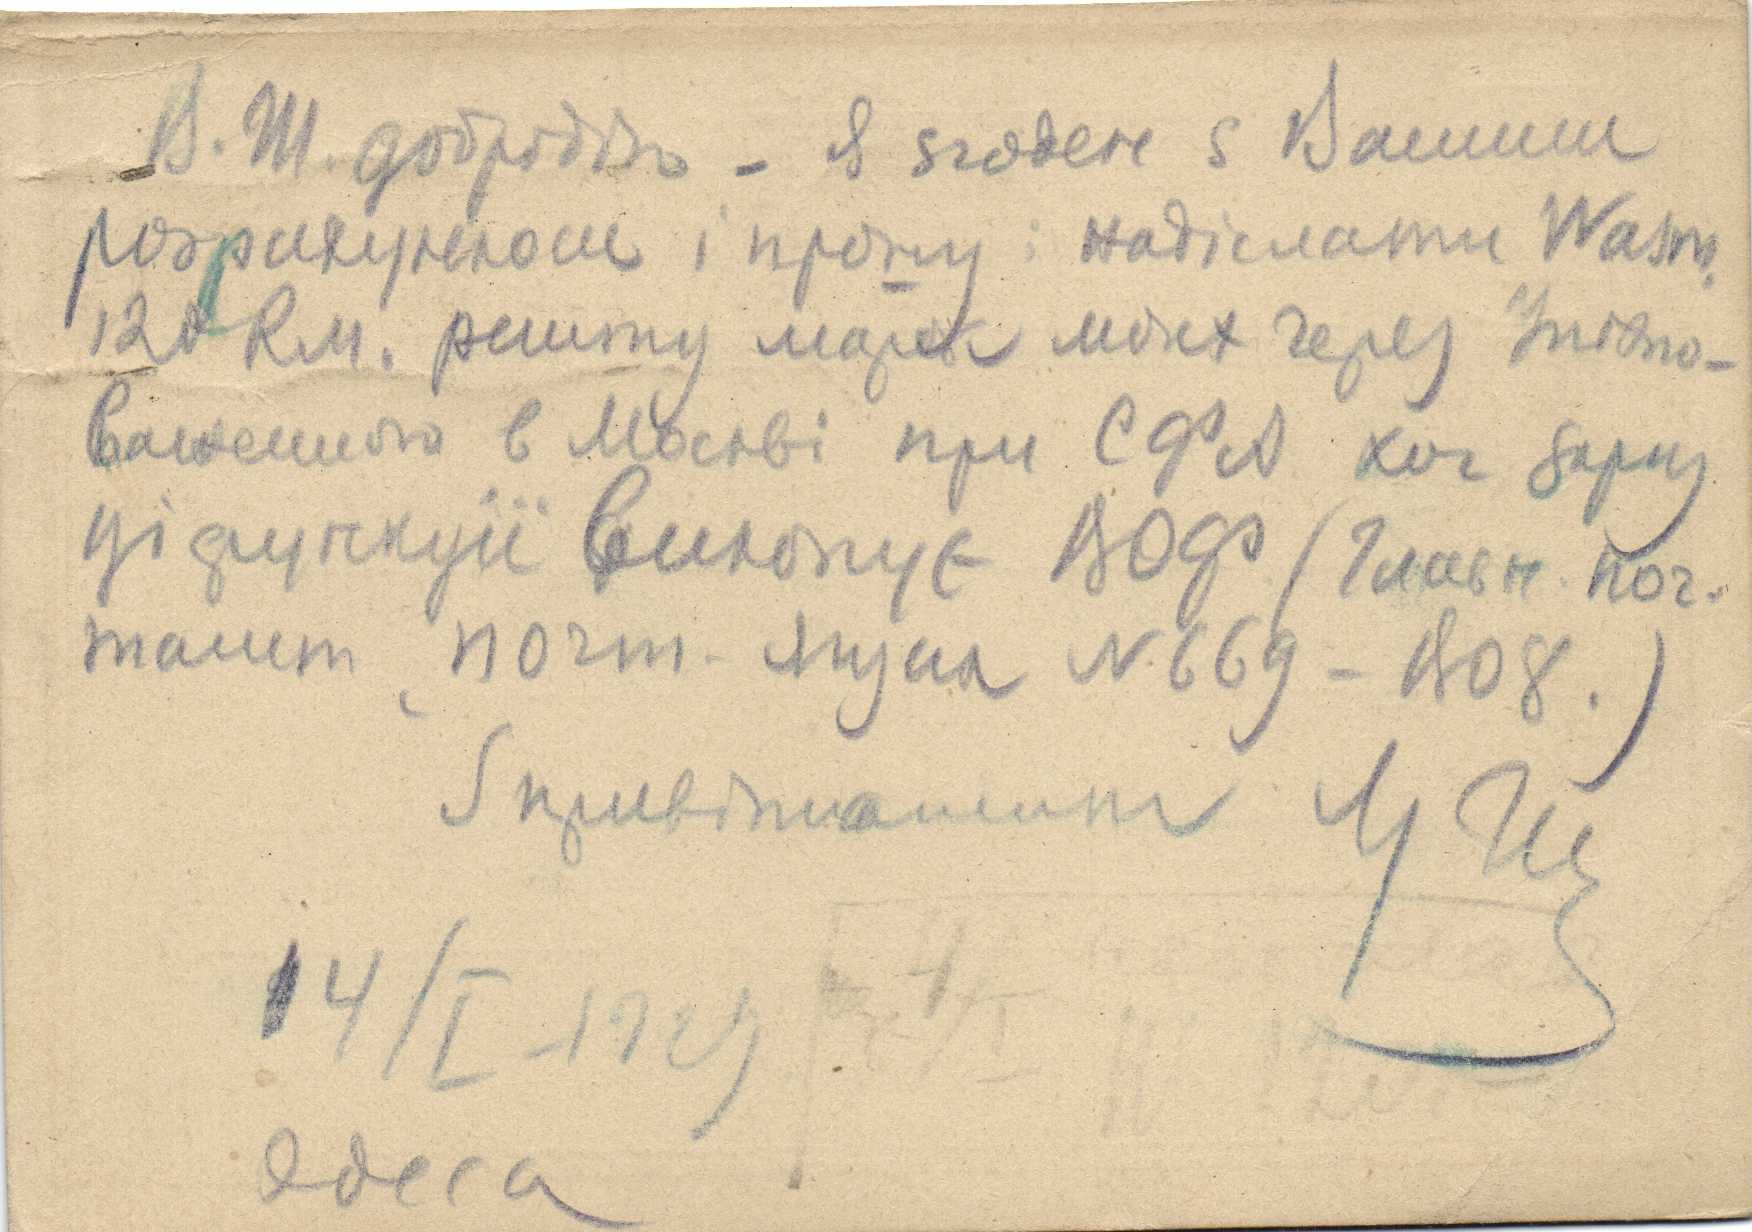 В. Ш. добродію - Я згоден з Вашим
розрахунком і прошу: надіслати Wasm.
120 Rм. решту марок моіх через Уповно-
важенного в Москві при СФА хоч зараз
ці функціі виконує ВОФ (Главн. Поч-
тамт, почт. ящик N. 669 - ВОФ.)
З привітанням
14/I - 192
Одеса